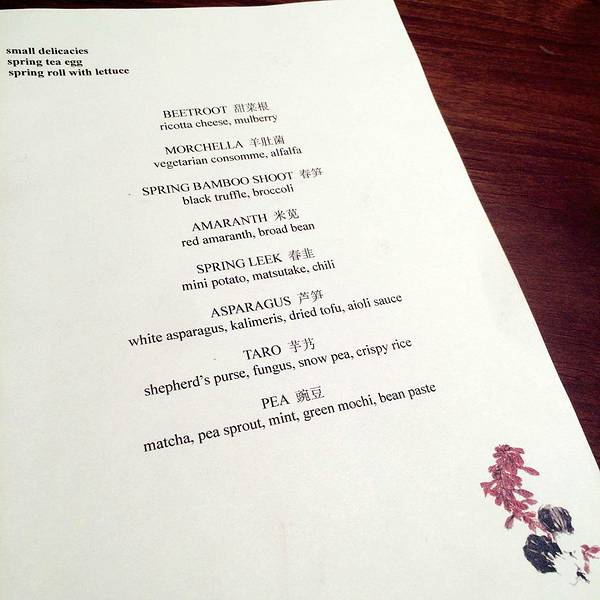 small delicacies
spring tea egg
spring roll with lettuce
BEETROOT 甜菜根
ricotta cheese, mulberry
MORCHELLA 羊肚菌
vegetarian consomme, alfalfa
SPRING BAMBOO SHOOT 春笋
black truffle, broccoli
AMARANTH 米苋
red amaranth, broad bean
SPRING LEEK 春韭
mini potato, matsutake, chili
ASPARAGUS 芦笋
white asparagus, kalimeris, dried tofu, aioli sauce
TARO 芋艿
shepherd's purse, fungus, snow pea, crispy rice
PEA 豌豆
matcha, pea sprout, mint, green mochi, bean paste